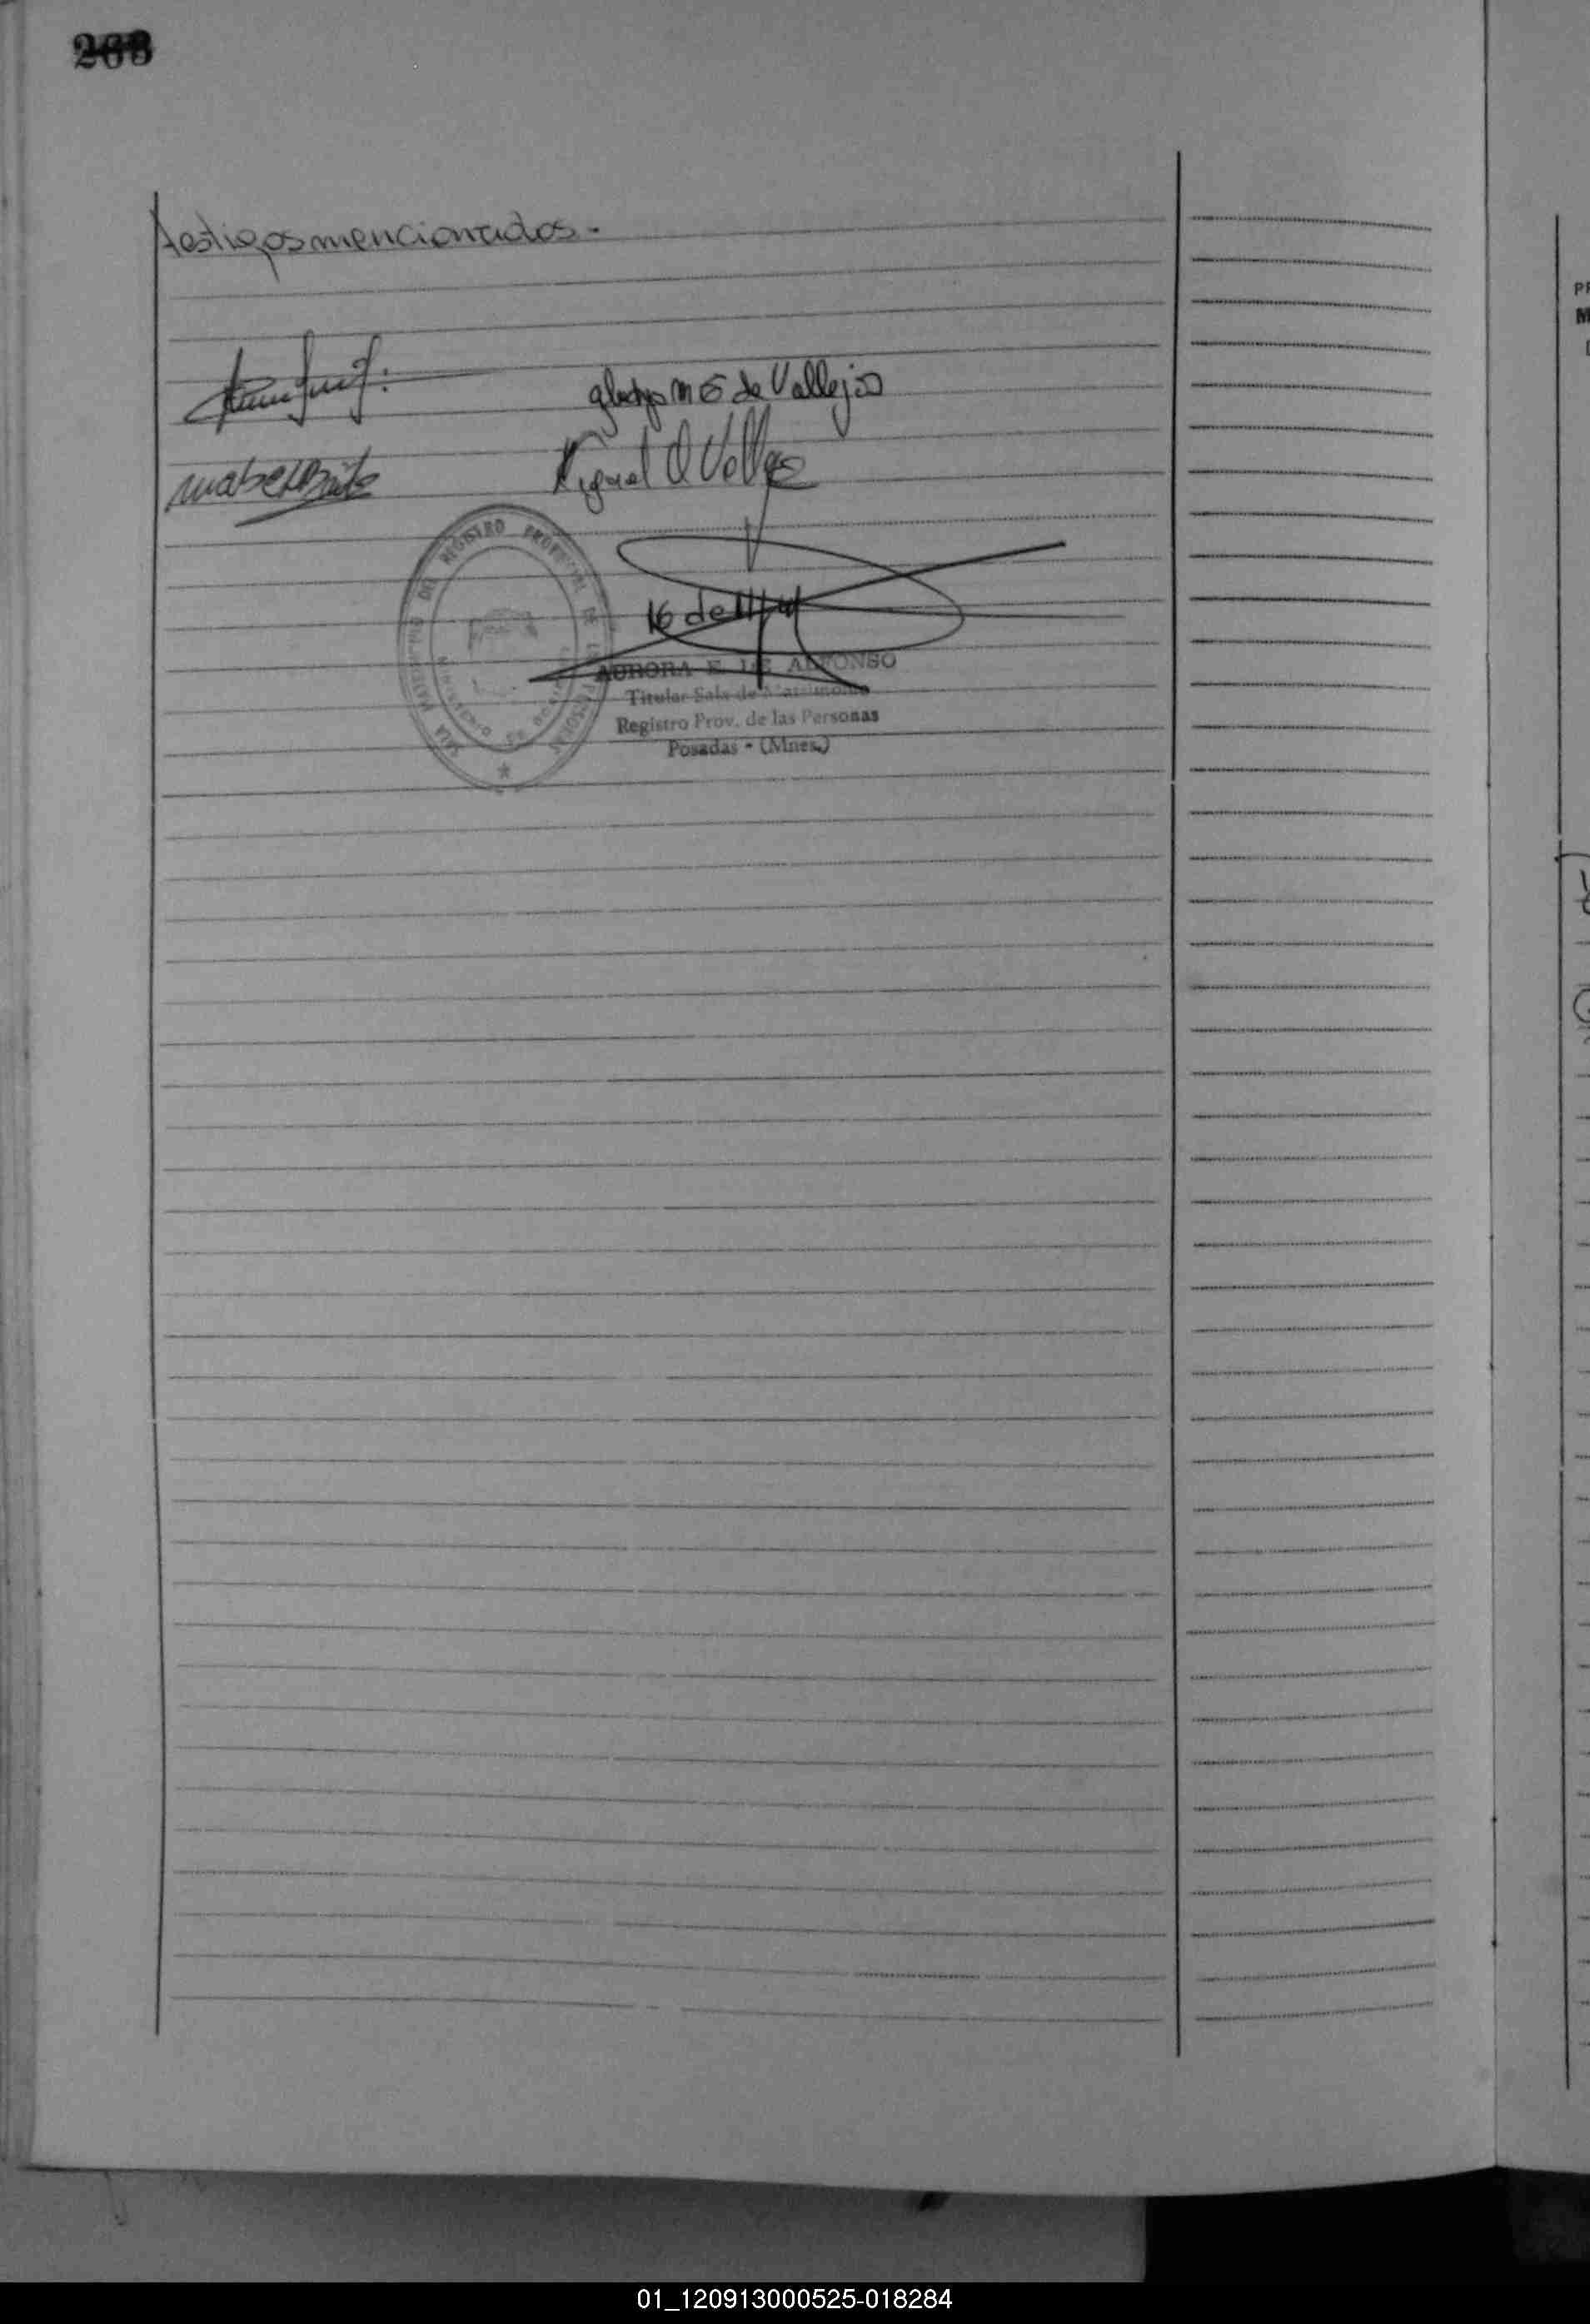 268
testigos mencionados.-
gladys M G de Vallejos
Mabel Brite
Miguel A Vallejos
SALA MATRIMONIO DEL REGISTRO PROVINCIAL DE LAS PERSONAS
MINISTERIO DE GOBIERNO
AURORA E. DE ALFONSO
Titular Sala de Matrimonio
Registro Prov. de las Personas
Posadas - (Mnes.)
01_120913000525-018284